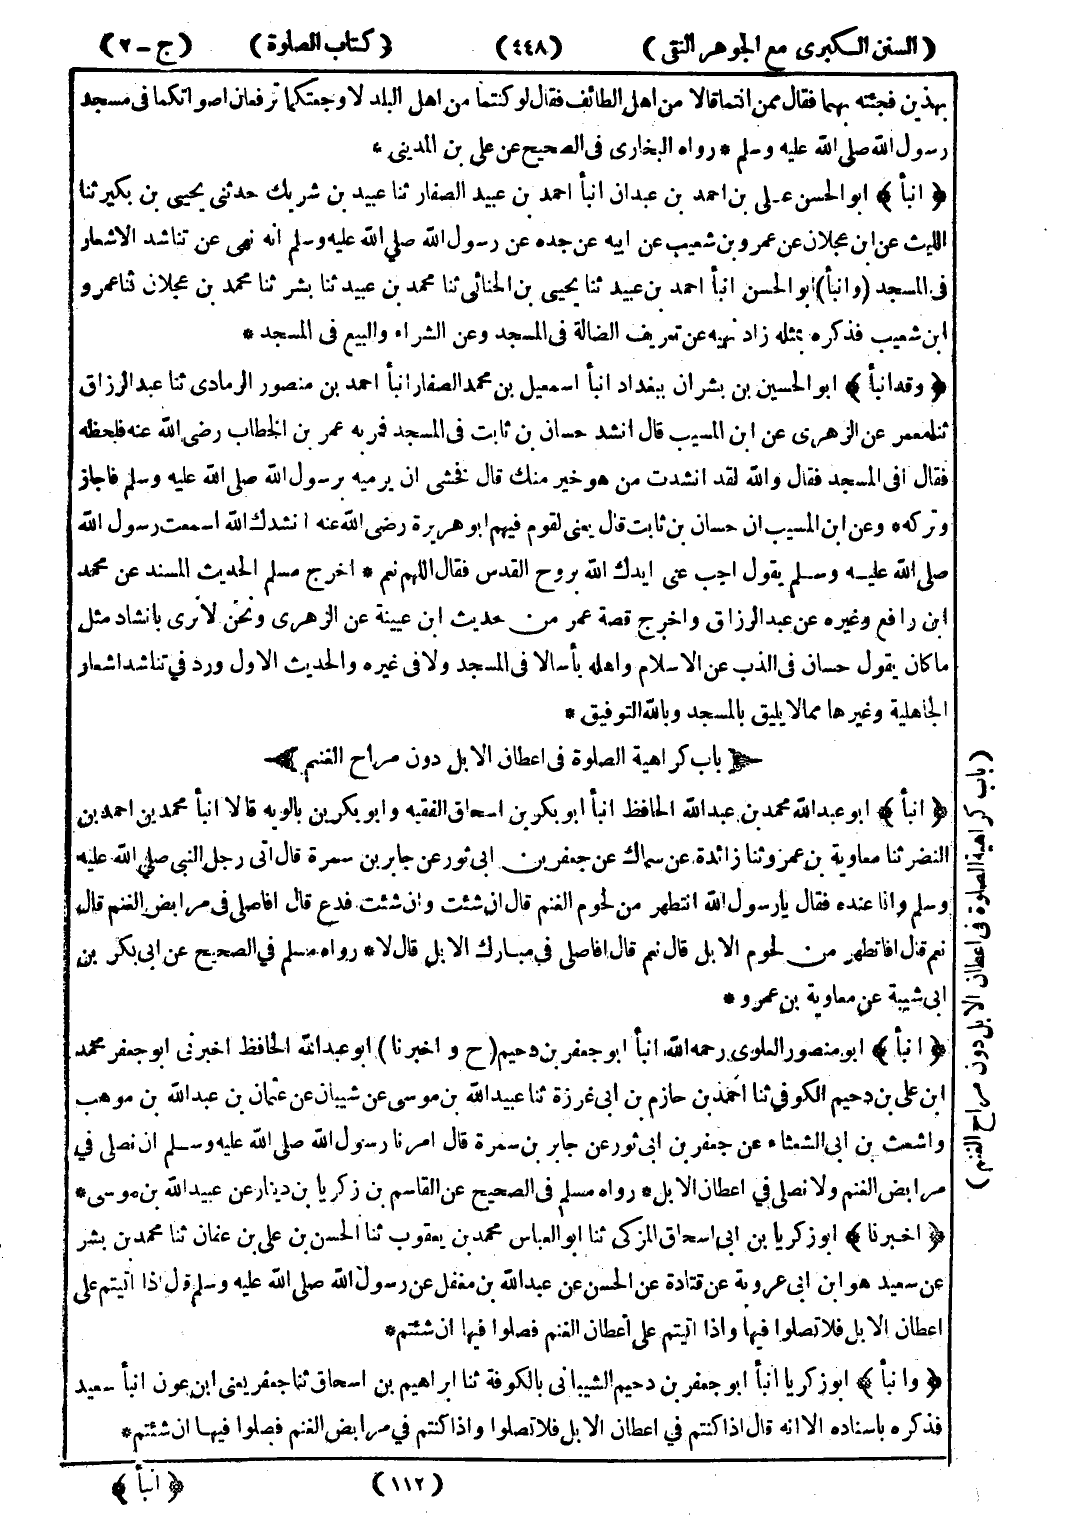 ( السنن الكبرى مع الجوهر النقى ) ( ٤٤٨ ) ( كتاب الصلوة ) ( ج - ٢ )
بهذين فجئته بهما فقال ممن انتما قالا من اهل الطائف فقال لو كنتما من اهل البلد لاوجعتكما ترفعان اصواتكما فى مسجد
رسول الله صلى الله عليه وسلم * رواه البخارى فى الصحيح عن على بن المدينى *
﴿ انبأ ﴾ ابو الحسن على بن احمد بن عبدان انبأ احمد بن عبيد الصفار ثنا عبيد بن شريك حدثنى يحيى بن بكير ثنا
الليث عن ابن عجلان عن عمرو بن شعيب عن ابيه عن جده عن رسول الله صلى الله عليه وسلم انه نهى عن تناشد الاشعار
فى المسجد ( وانبأ ) ابو الحسن انبأ احمد بن عبيد ثنا يحيى بن الحنائى ثنا محمد بن عبيد ثنا بشر ثنا محمد بن عجلان ثنا عمرو
ابن شعيب فذكره بمثله زاد نهيه عن تعريف الضالة فى المسجد وعن الشراء والبيع فى المسجد *
﴿ وقد انبأ ﴾ ابو الحسين بن بشران ببغداد انبأ اسمعيل بن محمد الصفار انبأ احمد بن منصور الرمادى ثنا عبد الرزاق
ثنا معمر عن الزهرى عن ابن المسيب قال انشد حسان بن ثابت فى المسجد فمر به عمر بن الخطاب رضى الله عنه فلحظه
فقال افى المسجد فقال والله لقد انشدت من هو خير منك قال فخشى ان يرميه برسول الله صلى الله عليه وسلم فاجاز
وتركه * وعن ابن المسيب ان حسان بن ثابت قال يعنى لقوم فيهم ابو هريرة رضى الله عنه انشدك الله اسمعت رسول الله
صلى الله عليه وسلم يقول اجب عنى ايدك الله بروح القدس فقال اللهم نعم * اخرج مسلم الحديث المسند عن محمد
ابن رافع وغيره عن عبد الرزاق واخرج قصة عمر من حديث ابن عيينة عن الزهرى ونحن لا نرى بانشاد مثل
ما كان يقول حسان فى الذب عن الاسلام واهله بأسا لا فى المسجد ولا فى غيره والحديث الاول ورد فى تناشد اشعار
الجاهلية وغيرها مما لا يليق بالمسجد وبالله التوفيق *
﴿ باب كراهية الصلوة فى اعطان الابل دون مراح الغنم ﴾
﴿ انبأ ﴾ ابو عبد الله محمد بن عبد الله الحافظ انبأ ابو بكر بن اسحاق الفقيه وابو بكر بن بالويه قالا انبأ محمد بن احمد بن
النضر ثنا معاوية بن عمرو ثنا زائدة عن سماك عن جعفر بن ابى ثور عن جابر بن سمرة قال اتى رجل النبى صلى الله عليه
وسلم وانا عنده فقال يا رسول الله انتطهر من لحوم الغنم قال ان شئت وان شئت فدع قال افاصلى فى مرابض الغنم قال
نعم قال افاتطهر من لحوم الابل قال نعم قال افاصلى فى مبارك الابل قال لا * رواه مسلم فى الصحيح عن ابى بكر بن
ابى شيبة عن معاوية بن عمرو *
﴿ انبأ ﴾ ابو منصور العلوى رحمه الله انبأ ابو جعفر بن دحيم ( ح و اخبرنا ) ابو عبد الله الحافظ اخبرنى ابو جعفر محمد
ابن على بن دحيم الكوفى ثنا احمد بن حازم بن ابى غرزة ثنا عبيد الله بن موسى عن شيبان عن عثمان بن عبد الله بن موهب
واشعث بن ابى الشعثاء عن جعفر بن ابى ثور عن جابر بن سمرة قال امرنا رسول الله صلى الله عليه وسلم ان نصلى فى
مرابض الغنم ولا نصلى فى اعطان الابل * رواه مسلم فى الصحيح عن القاسم بن زكريا بن دينار عن عبيد الله بن موسى *
﴿ اخبرنا ﴾ ابو زكريا بن ابى اسحاق المزكى ثنا ابو العباس محمد بن يعقوب ثنا الحسن بن على بن عفان ثنا محمد بن بشر
عن سعيد هو ابن ابى عروبة عن قتادة عن الحسن عن عبد الله بن مغفل عن رسول الله صلى الله عليه وسلم قال اذا اتيتم على
اعطان الابل فلا تصلوا فيها واذا اتيتم على أعطان الغنم فصلوا فيها ان شئتم *
﴿ وانبأ ﴾ ابو زكريا انبأ ابو جعفر بن دحيم الشيبانى بالكوفة ثنا ابراهيم بن اسحاق ثنا جعفر يعنى ابن عون انبأ سعيد
فذكره باسناده الا انه قال اذا كنتم فى اعطان الابل فلا تصلوا واذا كنتم فى مرابض الغنم فصلوا فيها ان شئتم *
( باب كراهية الصلوة فى اعطان الابل دون مراح الغنم )
( ١١٢ ) ﴿ انبأ ﴾